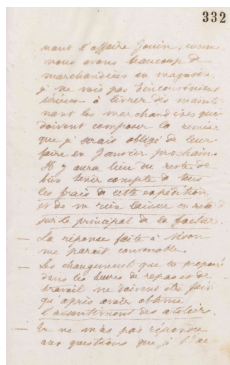 332
nant l'affaire Gouin, comme
nous avons beaucoup de
marchandises en magasin,
je ne vois pas d'inconvénient
sérieux à livrer dès mainte
nant les marchandises qui
doivent composer la remise
que je serais obligé de leur
faire en Janvier prochain
Il y aura lieu du reste de
bien tenir compte de tous
les frais de cette expédition
et de ne rien laisser en
sur le principal de la facture.
La réponse faite à
me parait convenable.
Les changements que tu proposes
dans les heures de repas et de
travail ne doivent être faits
qu'après avoir obtenu
l'assentiment des ateliers.
Tu ne m'as pas répondu
aux questions que je t'ai